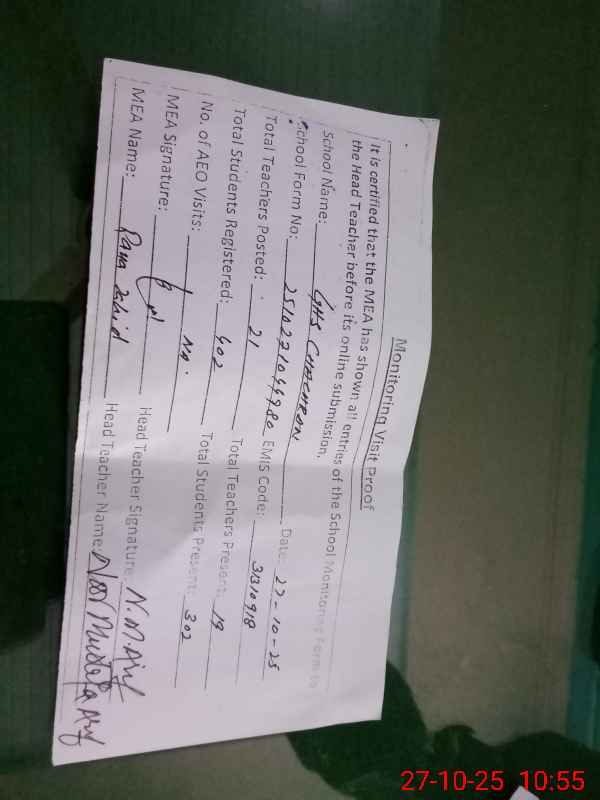 Monitoring Visit Proof
It is certified that the MEA has shown all entries of the School Monitoring Form to
the Head Teacher before its online submission.
School Name: GHS CHACHRON Date: 27-10-25
School Form No: 2510271044980 EMIS Code: 31310918
Total Teachers Posted: 21 Total Teachers Present: 19
Total Students Registered: 402 Total Students Present: 302
No. of AEO Visits: No.
MEA Signature: Head Teacher Signature: N.M.Arif
MEA Name: Rana Zahid Head Teacher Name: Noor Mustafa Arif
27-10-25 10:55